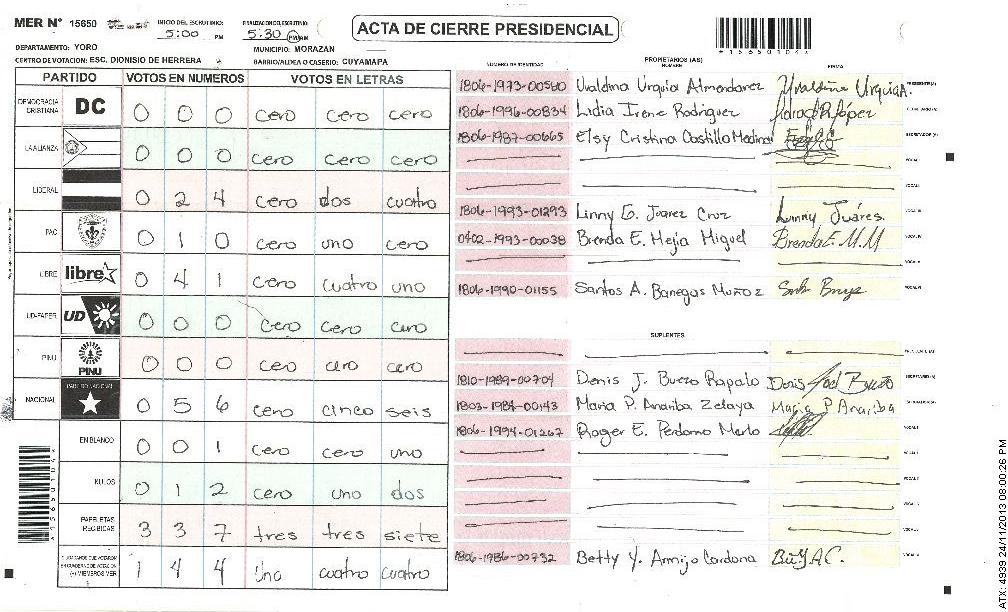 MER N° 15650
INICIO DEL ESCRUTINIO: 5:00 PM
FINALIZACION DEL ESCRUTINIO: 5:30 PM/AM
ACTA DE CIERRE PRESIDENCIAL
*156501044*
DEPARTAMENTO: YORO
MUNICIPIO: MORAZAN
CENTRO DE VOTACION: ESC. DIONISIO DE HERRERA
BARRIO/ALDEA O CASERIO: CUYAMAPA
PARTIDO VOTOS EN NUMEROS VOTOS EN LETRAS
DEMOCRACIA CRISTIANA DC 0 0 0 cero cero cero
LA ALIANZA 0 0 0 cero cero cero
LIBERAL 0 2 4 cero dos cuatro
PAC 0 1 0 cero uno cero
LIBRE libre 0 4 1 cero cuatro uno
UD-FAPER UD 0 0 0 cero cero cero
PINU PINU 0 0 0 cero cero cero
NACIONAL PARTIDO NACIONAL 0 5 6 cero cinco seis
EN BLANCO 0 0 1 cero cero uno
NULOS 0 1 2 cero uno dos
PAPELETAS RECIBIDAS 3 3 7 tres tres siete
(+) MIEMBROS MER 1 4 4 Uno cuatro cuatro
PROPIETARIOS (AS)
NUMERO DE IDENTIDAD NOMBRE FIRMA
1806-1973-00560 Uvaldina Urquia Almendarez Uvaldina Urquia A. PRESIDENTE(A)
1806-1996-00834 Lidia Irene Rodriguez
1806-1987-00665 Elsy Cristina Castillo Medina SECRETARIO (A)
VOCAL I
VOCAL II
1806-1993-01293 Linny G. Juarez Cruz Linny Juáres. VOCAL III
0402-1993-00038 Brenda E. Mejia Miguel Brenda E. M.M VOCAL IV
VOCAL V
1806-1990-01155 Santos A. Banegas Muñoz VOCAL VI
SUPLENTES
1810-1989-00704 Denis J. Buezo Rapalo SECRETARIO(A)
1803-1984-00143 Maria P. Anariba Zelaya Maria P Anariba
1806-1994-01267 Roger E. Perdomo Merlo VOCAL I
1806-1986-00732 Betty Y. Armijo Cardona
ATX: 4939 24/11/2013 08:00:26 PM